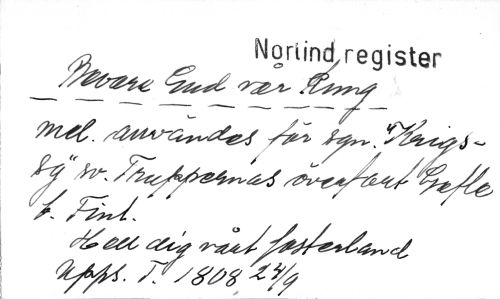 Norlind, register
Bevara Gud vår Kung
mel. användes för sgn. "Krigs-
sg" sv. Truppernas överfart Gefle
t. Finl.
Hell dig vårt fosterland
Upps. T. 1808 24/9